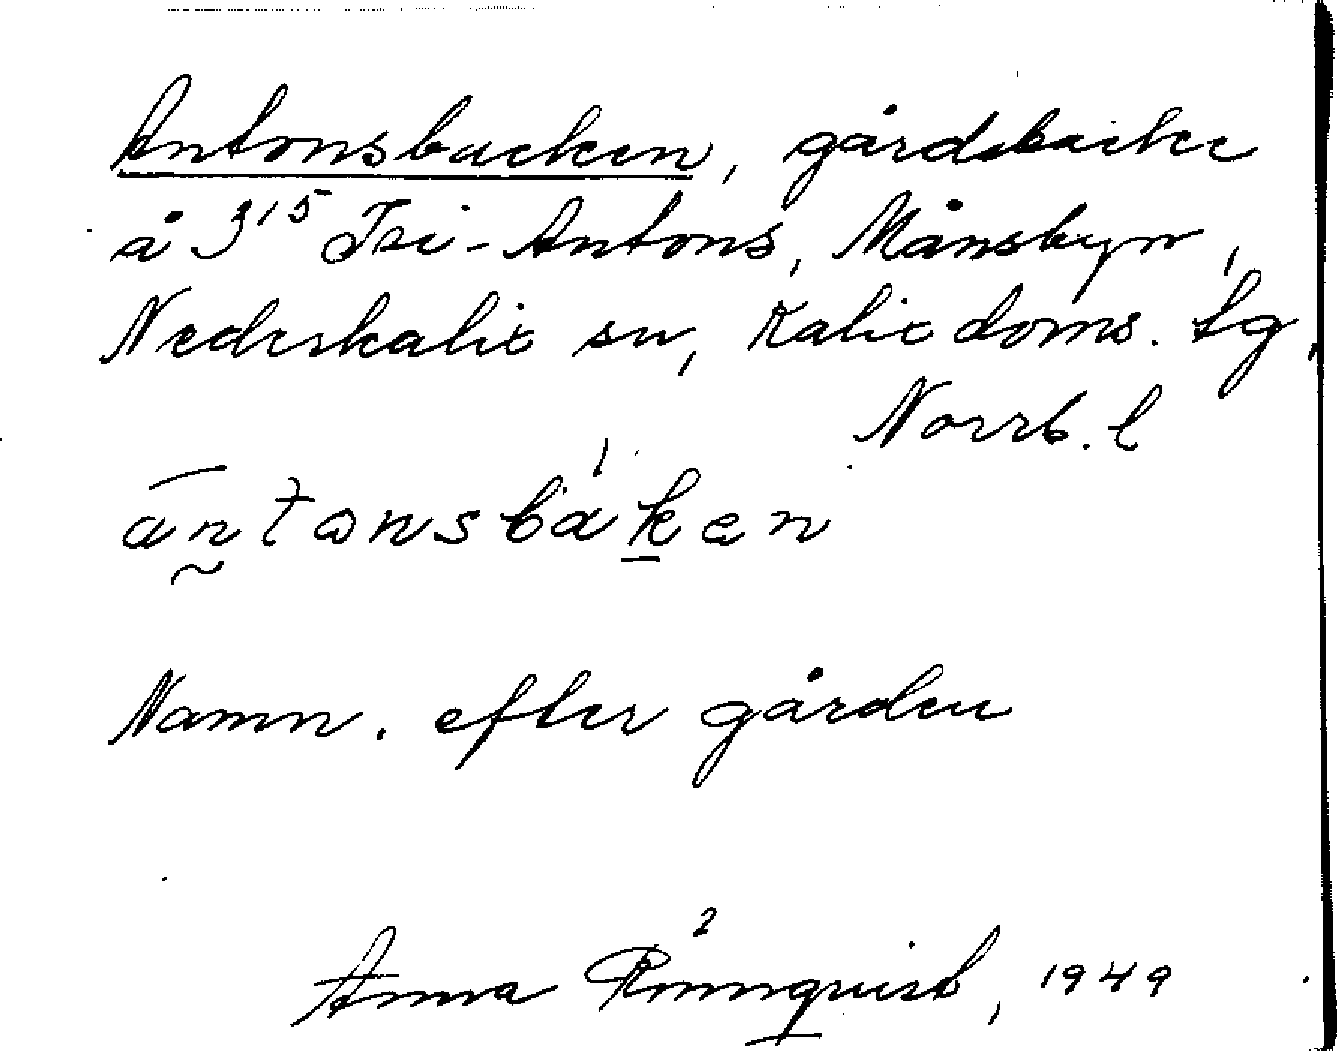 Antonsbacken, gårdsbacke
å 3¹⁵ Isi-Antons, Månsbyn,
Nederkalix sn, Kalix doms. lg,
Norrb. l
antonsbaken
Namn. efter gården
Anna Rönnquist, 1949